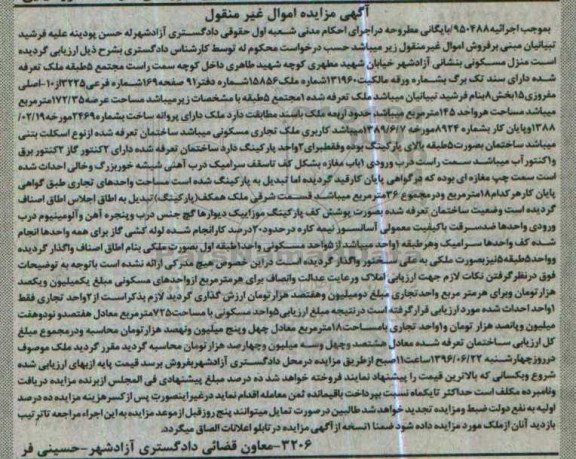 آگهی مزایده اموال غیر منقول
بموجب اجرائیه۹۵۰۴۸۸/بایگانی مطروحه دراجرای احکام مدنی شعبه اول حقوقی دادگستری آزادشهرله حسن پودینه علیه فرشید
تبیانیان مبنی برفروش اموال غیرمنقول زیر میباشد حسب درخواست محکوم له توسط کارشناس دادگستری بشرح ذیل ارزیابی گردیده
است منزل مسکونی بنشانی آزادشهر خیابان شهید مطهری کوچه شهید طاهری داخل کوچه سمت راست مجتمع ۵طبقه ملک تعرفه
شده دارای سند تک برگ بشماره ورقه مالکیت۱۳۹۶۰شماره ملک۱۵۸۵۶شماره دفتر۹۱ صفحه۱۶۹شماره فرعی۳۲۲۵از۱۰-اصلی
مفروزی۱۵بخش۸بنام فرشید تبیانیان میباشدملک تعرفه شده۱مجتمع ۵طبقه با مشخصات زیرمیباشد مساحت عرصه۱۷۲/۳۵مترمربع
میباشد مساحت هرواحد ۱۴۵مترمربع میباشد حدود اربعه ملک باسند مطابقت دارد ملک دارای پروانه ساخت بشماره۲۴۶۹مورخه۰۲/۱۹/
۱۳۸۸وپایان کار بشماره ۸۹۲۴مورخه ۱۳۸۹/۶/۷میباشد کاربری ملک تجاری مسکونی میباشد ساختمان تعرفه شده ازنوع اسکلت بتنی
میباشد ساختمان بصورت۵طبقه بالای پارکینگ بوده وفقطبرای۲واحد پارکینگ دارد ساختمان تعرفه شده دارای ۲کنتور گاز ۲کنتور برق
و۱کنتور آب میباشد سمت راست درب ورودی ۱باب مغازه بشکل کف تاسقف سرامیک درب آهنی شیشه خوربزرگ وخالی احداث شده
است سمت چپ مغازه ای بوده که درگواهی پایان کارقید گردیده اما تبدیل به پارکینگ شده است مساحت واحدهای تجاری طبق گواهی
پایان کارهرکدام۱۸مترمربع ودرمجموع ۳۶مترمربع میباشد قسمت شرقی ملک همکف(پارکینگ)تبدیل به اطاق اجلاس اطاق اصناف
گردیده است وضعیت ساختمان تعرفه شده بصورت پوشش کف پارکینگ موزاییک دیوارها گچ جنس درب وپنجره آهن وآلومینیوم درب
ورودی واحدها ضدسرقت باکیفیت معمولی آسانسور نیمه کاره درحدود۲۰درصد کارانجام شده لوله کشی گاز برای همه واحدها انجام
شده کف واحدها سرامیک وهرطبقه ۱واحد میباشداز۵واحد مسکونی واحد۱طبقه اول بصورت ملکی بنام اطاق اصناف واگذار گردیده
وواحد۵طبقه۵نیزبصورت ملکی به علی نستور واگذار گردیده است دراین خصوص هیچ مدرکی ارائه نشده است باتوجه به توضیحات
فوق درنظرگرفتن نکات لازم جهت ارزیابی املاک ورعایت عدالت وانصاف برای هرمترمربع ازواحدهای مسکونی مبلغ یکمیلیون ویکصد
هزارتومان وبرای هرمتر مربع واحدتجاری مبلغ دومیلیون وهفتصد هزارتومان ارزش گذاری گردید لازم بذکراست از ۲واحد تجاری فقط
۱واحد احداث شده مورد ارزیابی قرارگرفته است درنتیجه مبلغ ارزیابی۵واحد مسکونی با مساحت۷۲۵مترمربع معادل هفتصدو نودوهفت
میلیون وپانصد هزار تومان و۱واحد تجاری بامساحت۱۸مترمربع معادل چهل وپنج میلیون ونهصد هزارتومان محاسبه ودرمجموع مبلغ
کل ارزیابی ساختمان تعرفه شده معادل هشتصد وچهل وسه میلیون وچهارصد هزارتومان محاسبه گردید مقرر گردید ملک موصوف
درروزچهارشنبه ۱۳۹۶/۰۶/۲۲ساعت۱۱صبح ازطریق مزایده درمحل دادگستری آزادشهربفروش برسد قیمت پایه ازبهای ارزیابی شده
شروع وبکسانی که بالاترین قیمت را پیشنهاد نمایند فروخته خواهد شد ده درصد مبلغ پیشنهادی فی المجلس ازبرنده مزایده دریافت
ونامبرده مکلف است حداکثر تایکماه نسبت بپرداخت باقیمانده ثمن معامله اقدام نماید درغیراینصورت پس از کسرهزینه مزایده ده درصد
اولیه به نفع دولت ضبط ومزایده تجدید خواهدشد طالبین درصورت تمایل میتوانند پنج روزقبل ازموعد مزایده به این اجراء مراجعه تاترتیب
بازدید آنان ازملک مورد مزایده داده شود ضمنا ۱نسخه ازآگهی مزایده در تابلو اعلانات الصاق میگردد.
۳۲۰۶-معاون قضائی دادگستری آزادشهر-حسینی فر